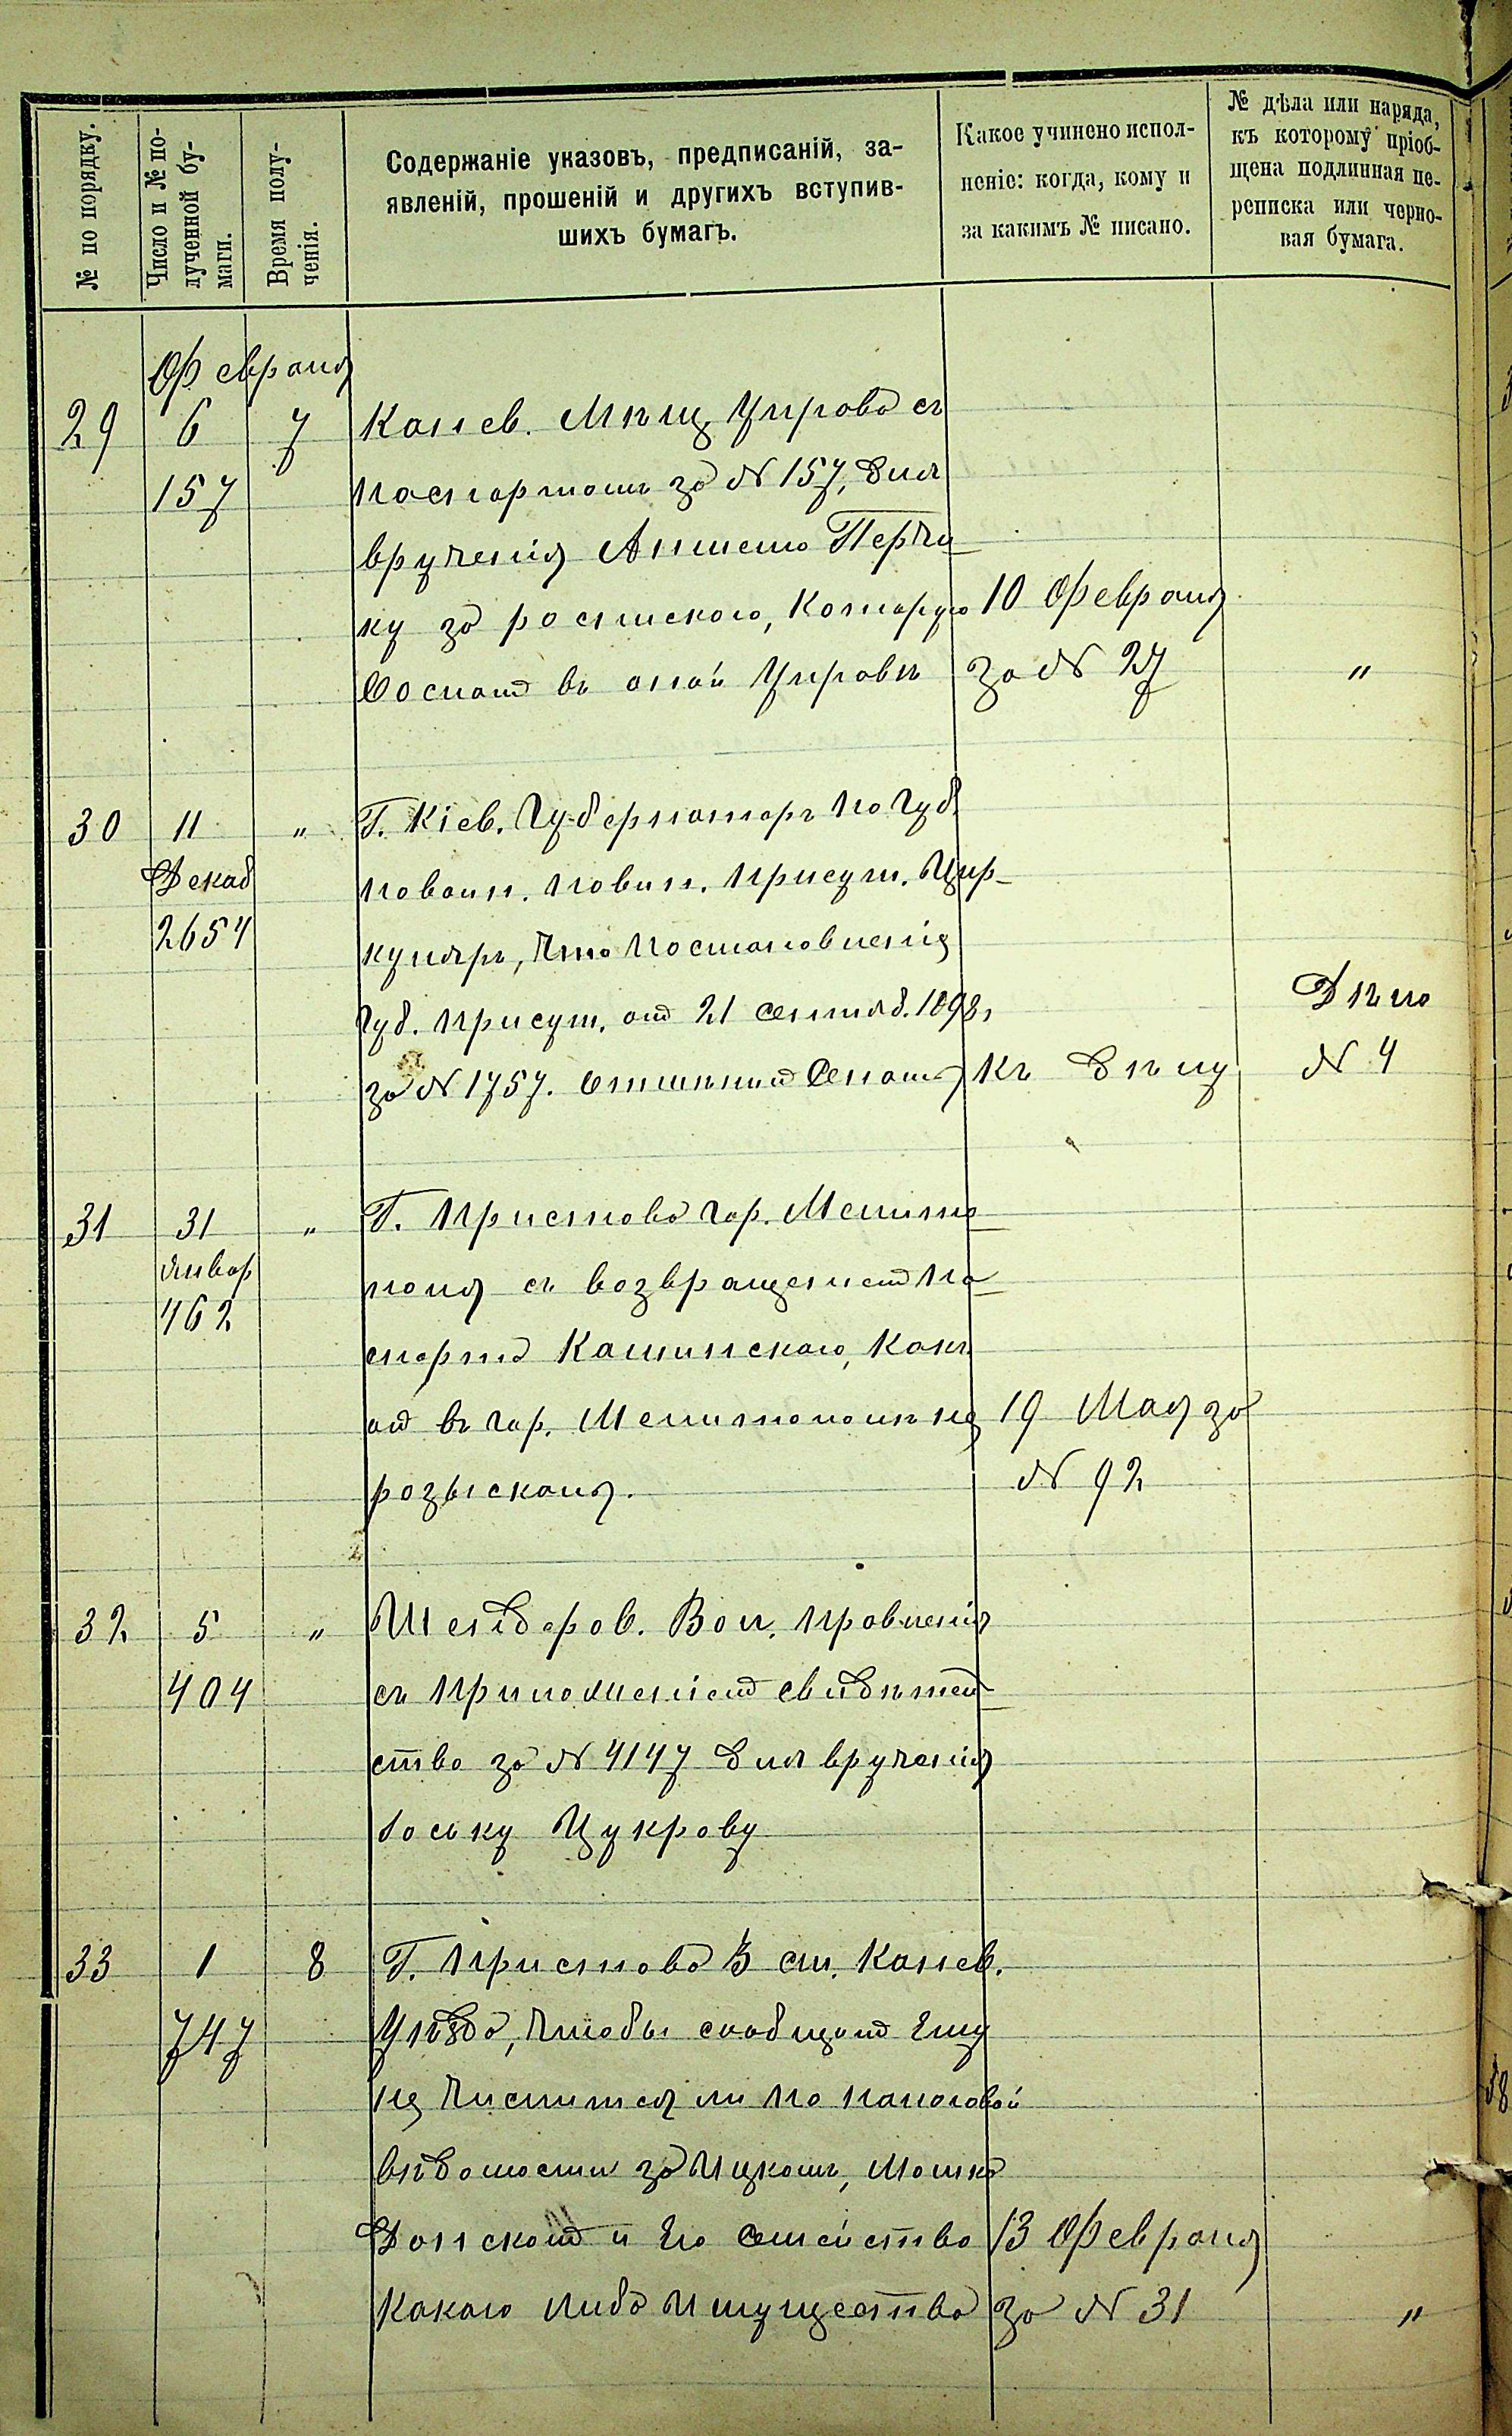 № по порядку.
Число и № по-
лученной бу-
маги.
Время полу-
ченія.
Содержаніе указовъ, предписаній, за-
явленій, прошеній и другихъ вступив-
шихъ бумагъ.
Какое учинено испол-
неніе: когда, кому и
за какимъ № писано.
№ дѣла или наряда,
къ которому пріоб-
щена подлинная пе-
реписка или черно-
вая бумага.
Февраля
29 6 7 Канев. Мѣщ. Управа съ
157 паспортомъ за № 157, для
врученія
ку за роспискою, которую 10 Февраля
въ оной Управѣ за № 27 "
30 11 " Г. Кіев. Губернаторъ по Губ.
Декаб по воин. повин. присут. Цир-
2654 куляръ, что постановленія
Губ. присут. отъ 21 Сентяб. 1898,
за № 1757. Сенатъ къ дѣлу
Дѣло
№ 4
31 31 " Г. Пристава гор. Мелито-
Январ поля съ возвращеніемъ па-
462 спорта каковъ
въ гор. Мелитополѣ не 19 Мая за
розысканъ. № 92
32 5 " Шендеров. Вол. Правленія
404 съ приложеніемъ свидѣтель-
ство за № 4147 для врученія
Іоську Цукрову
33 1 8 Г. Пристава 3 ст. Канев.
747 Уѣзда, чтобы сообщить ему
не числится ли по налоговой
вѣдомости за Ицкомъ, Мошка
Донскомъ и его семейство 13 Февраля
какого либо имущества за № 31 "